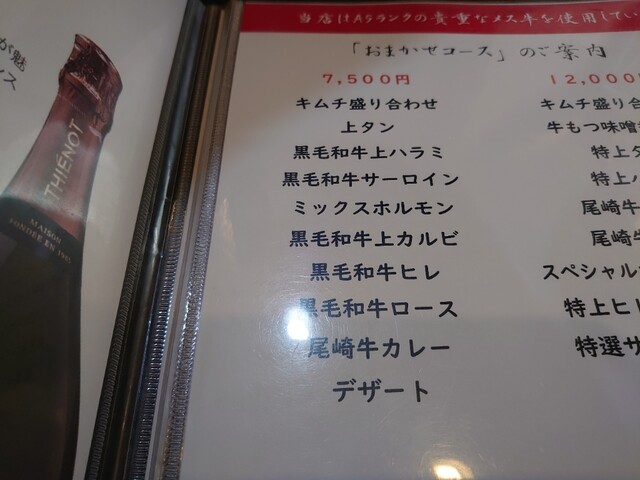 が魅
ス
THIENOT
MAISON
FONDÉE EN 1985
当店はA5ランクの貴重なメス牛を使用してい
「おまかせコース」のご案内
7,500円
キムチ盛り合わせ
上タン
黒毛和牛上ハラミ
黒毛和牛サーロイン
ミックスホルモン
黒毛和牛上カルビ
黒毛和牛ヒレ
黒毛和牛ロース
尾崎牛カレー
デザート
12,000
キムチ盛り合
牛もつ味噌
特上タ
特上ハ
尾崎牛
尾崎牛
スペシャル
特上ヒレ
特選サ